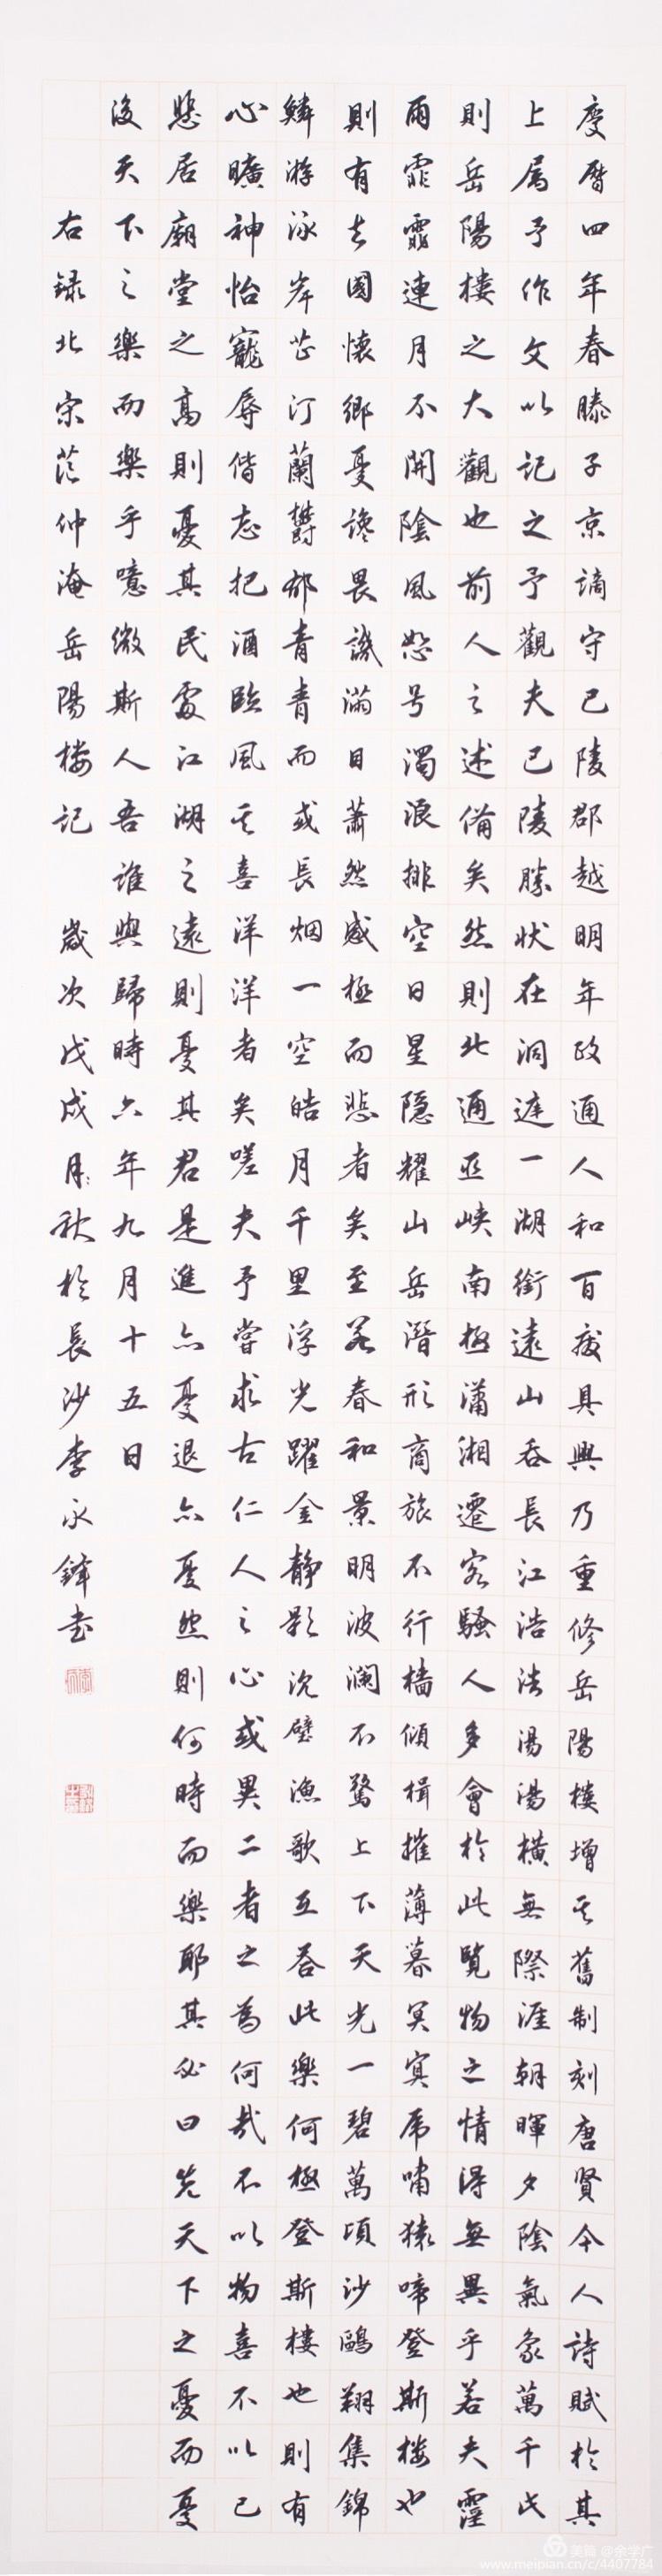 慶曆四年春滕子京謫守巴陵郡越明年政通人和百廢具興乃重修岳陽樓增其舊制刻唐賢今人詩賦於其
上屬予作文以記之予觀夫巴陵勝狀在洞庭一湖銜遠山吞長江浩浩湯湯橫無際涯朝暉夕陰氣象萬千此
則岳陽樓之大觀也前人之述備矣然則北通巫峽南極瀟湘遷客騷人多會於此覽物之情得無異乎若夫霪
雨霏霏連月不開陰風怒号濁浪排空日星隱耀山岳潛形商旅不行檣傾楫摧薄暮冥冥虎嘯猿啼登斯樓也
則有去國懷鄉憂讒畏譏滿目蕭然感極而悲者矣至若春和景明波瀾不驚上下天光一碧萬頃沙鷗翔集錦
鱗游泳岸芷汀蘭欝郁青青而或長烟一空皓月千里浮光躍金靜影沉璧漁歌互答此樂何極登斯樓也則有
心曠神怡寵辱偕忘把酒臨風其喜洋洋者矣嗟夫予嘗求古仁人之心或異二者之為何哉不以物喜不以己
悲居廟堂之高則憂其民處江湖之遠則憂其君是進亦憂退亦憂然則何時而樂耶其必曰先天下之憂而憂
後天下之樂而樂乎噫微斯人吾誰與歸時六年九月十五日
右録北宋范仲淹岳陽楼記 歲次戊戌月秋於長沙李永鋒書
美篇 @余学广
www.meipian.cn/c/4407784